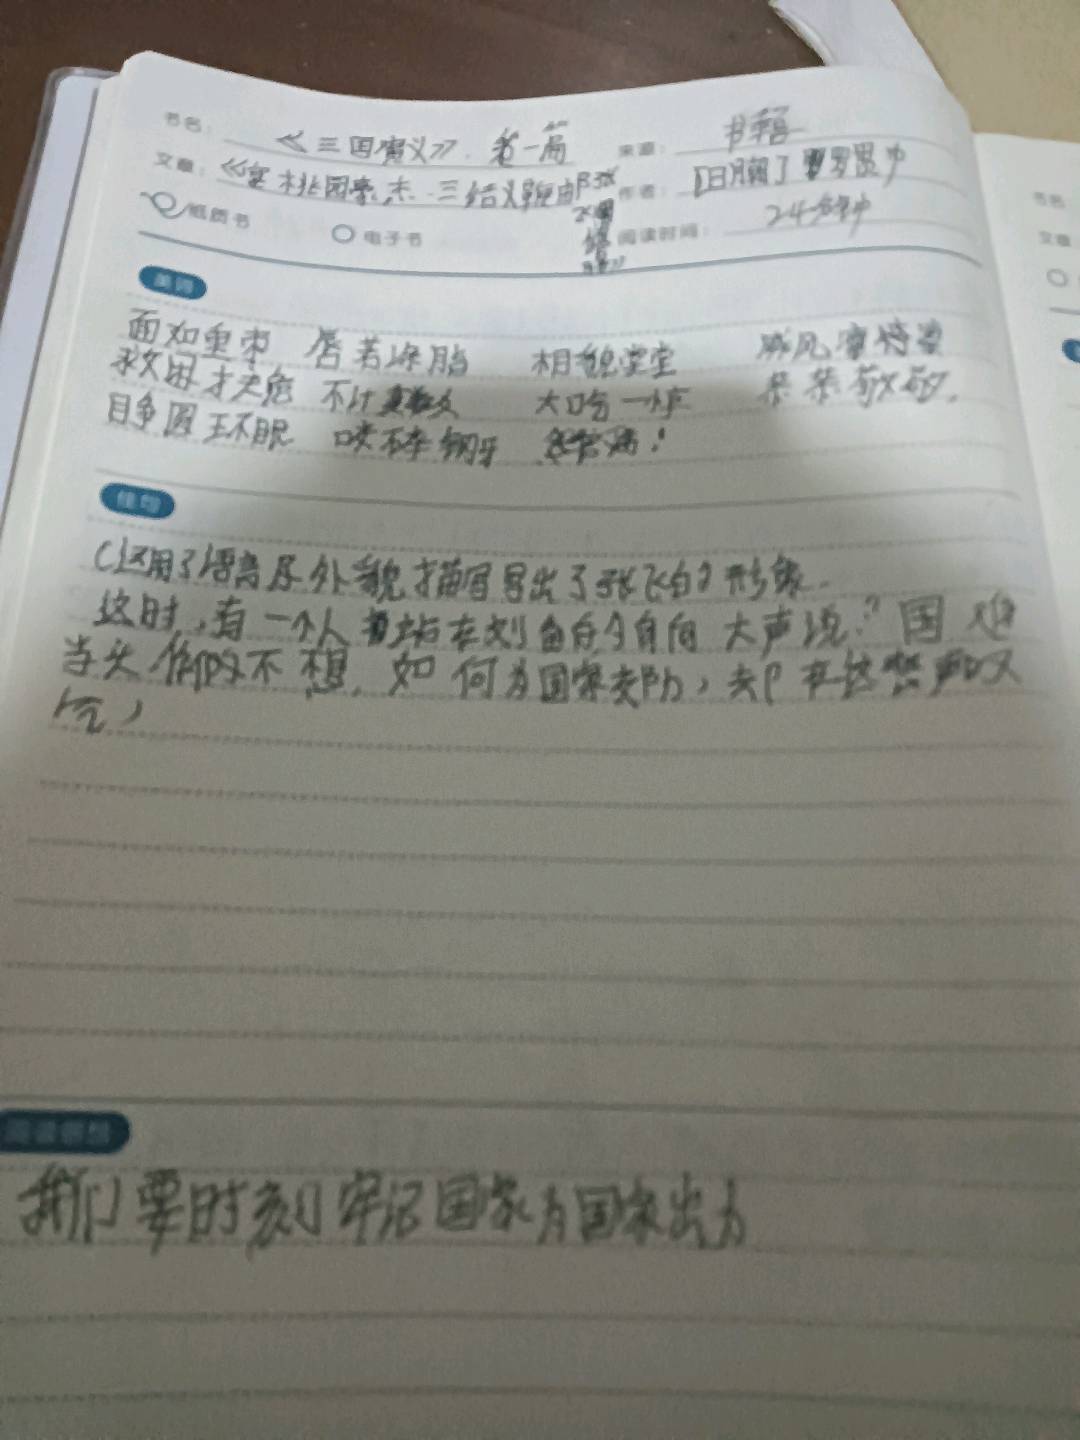 书名： 《三国演义》 第一局 来源： 书籍
文章： 桃园豪杰三结义 作者： [明]罗贯中
纸质书 电子书 阅读时间： 24分钟
美词
面如重枣 唇若涂脂 相貌堂堂 威风凛凛
救困扶危 不计其数 大吃一惊 恭恭敬敬
目争圆环眼 咬碎钢牙
佳句
(运用了语言及外貌描写写出了张飞的形象.
这时，有一个人站在刘备的身向大声说：国难
当头你们不想，如何为国家卖力，却在这里叹
气，
阅读感想
我们要时刻牢记国家为国家出力
书名
文章